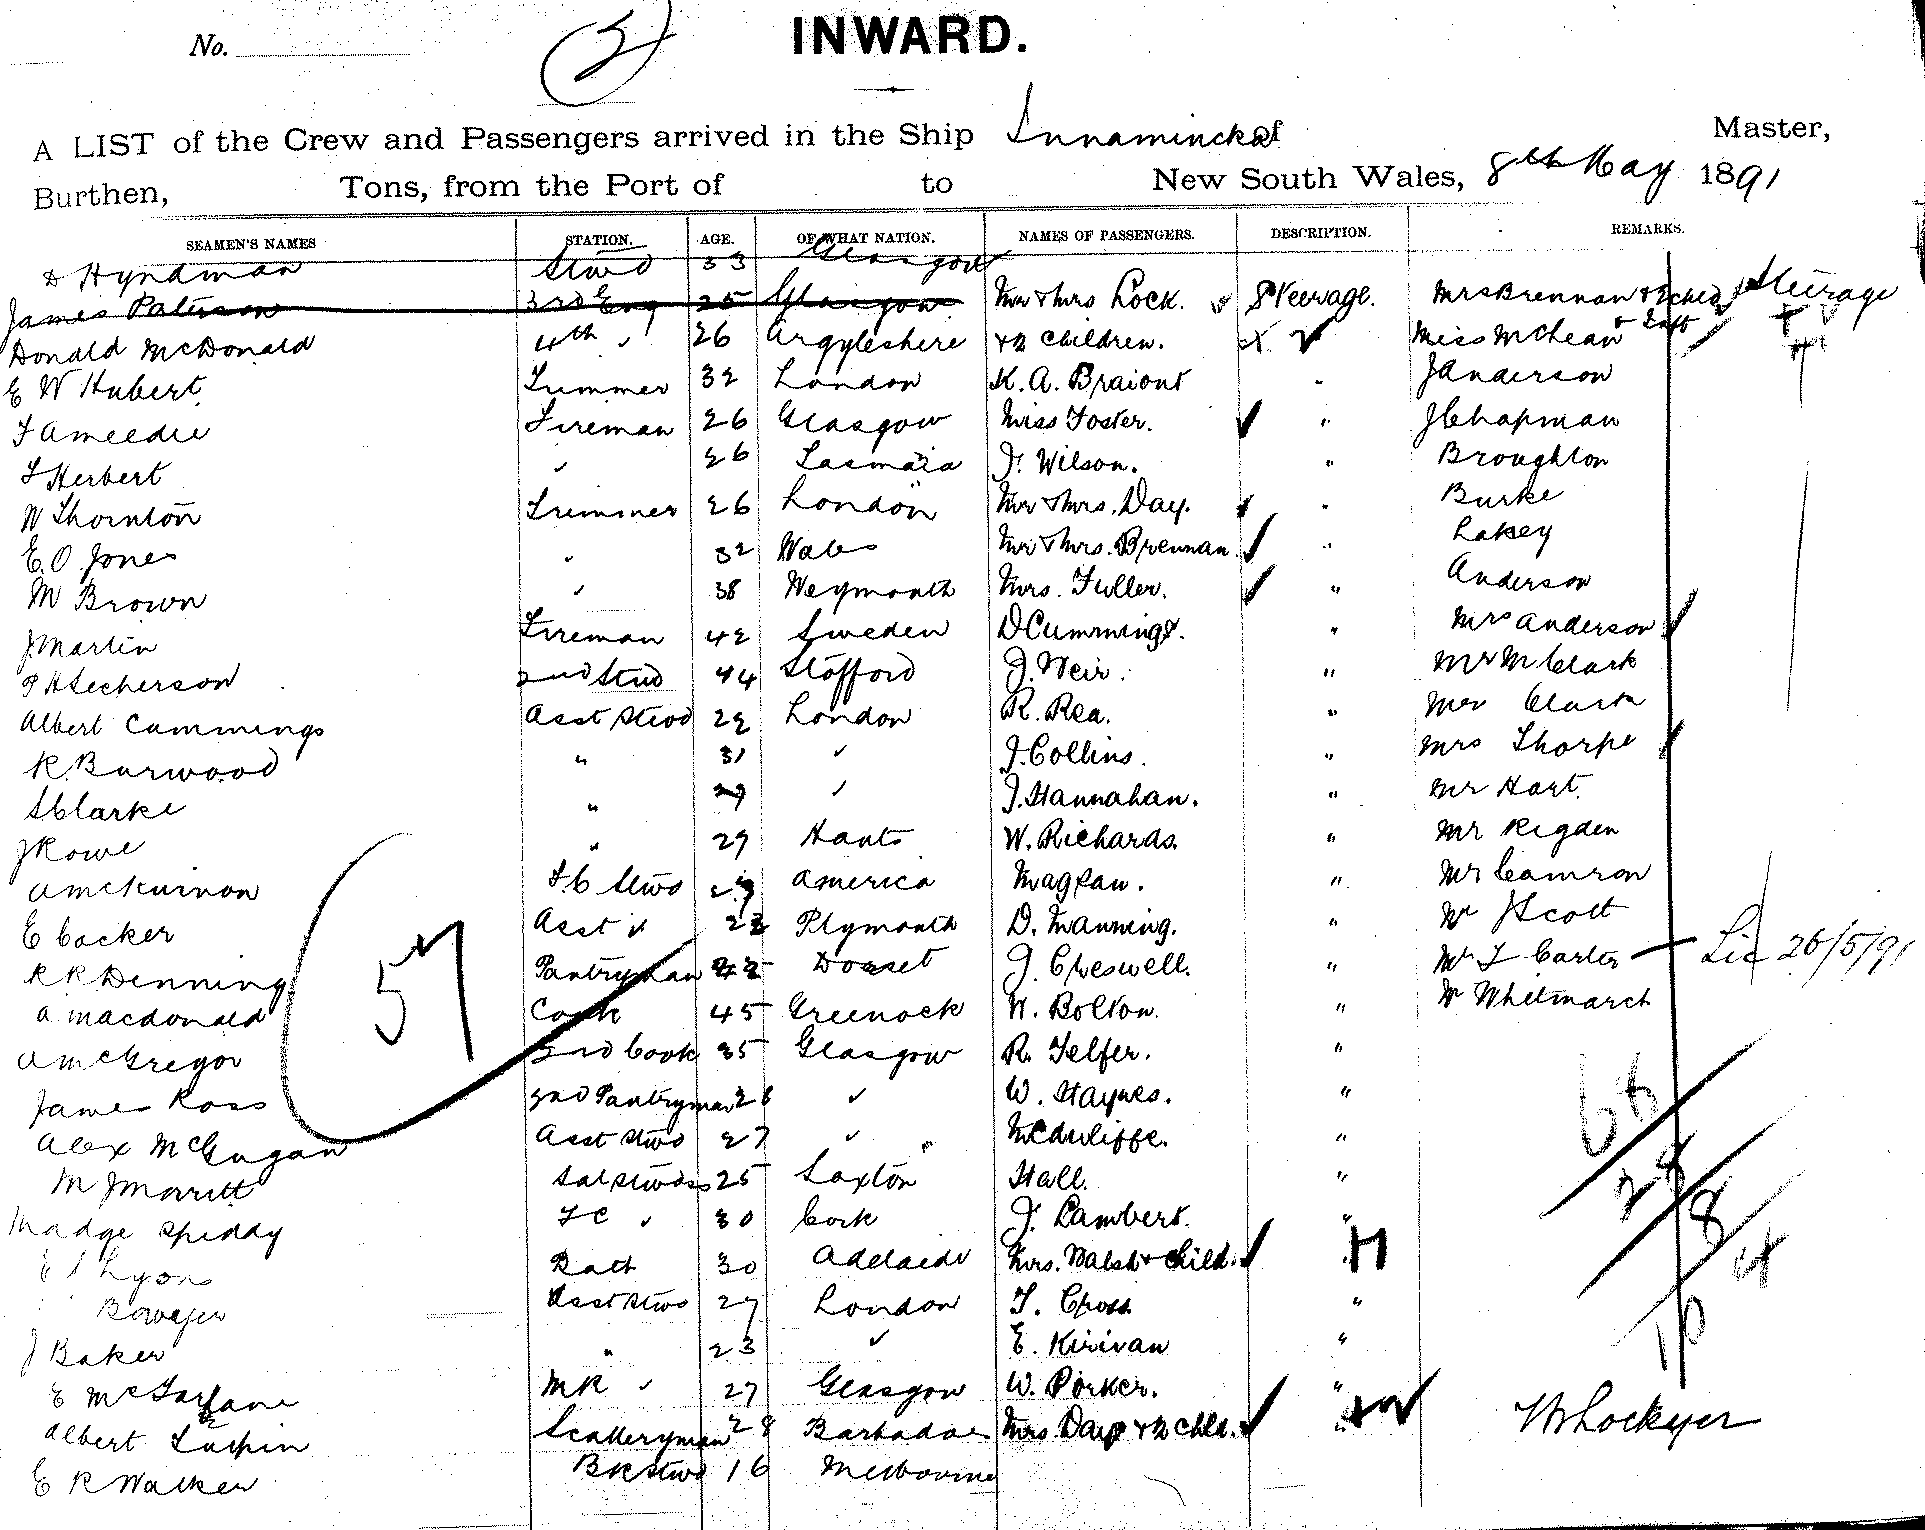 No. (2) INWARD.
A LIST of the Crew and Passengers arrived in the Ship Innamincka of Master,
Burthen, Tons, from the Port of to New South Wales, 8th May 1891
SEAMEN'S NAMES STATION. AGE. OF WHAT NATION. NAMES OF PASSENGERS. DESCRIPTION. REMARKS.
Hyndman Stwd 33 Glasgow
James Paterson 3rd Eng 25 Glasgow Mr & Mrs Lock. Steerage. Mrs Brennan & Steerage
Donald McDonald 4th " 26 Argyleshire & 2 Children. Miss McLean
E W Hubert Trimmer 32 London K. A. Braiont " J Anderson
F Ameedie Fireman 26 Glasgow Miss Foster. " J Chapman
F Herbert " 26 Tasmaia J. Wilson. " Broughton
W Thornton Trimmer 26 London Mr & Mrs. Day. " Burke
E. O. Jones " 32 Wales Mr & Mrs. Brennan " Lakey
M Brown " 38 Weymouth Mrs. Fuller. " Anderson
J Martin Fireman 42 Sweden D Cummings. " Mrs Anderson
2nd Stwd 44 Stafford J. Weir. " Mr M Clark
Albert Cammings Asst Stwd 22 London R. Rea. " Clark
R. Burwood " 31 " J. Collins. " Mrs Thorpe
S Clarke " " J. Hannahan. " Mr Hart.
J Rowe " 29 Hants W. Richards. " Mr Rigden
A McKinnon F. C Stwd America Magean. " Mr Camron
E Cocker Asst " Plymouth D. Manning. " Mr J Scott
R R Denning Pantryman Dorset J. Creswell. " Mr T Carter Lic 26/5/91
A. Macdonald 57 Cook 45 Greenock W. Bolton. " Mr Whitmarch
A McGregor 2nd Cook 35 Glasgow R. Telfer. "
James Ross 2nd Pantryman 26 " W. Haynes. "
Alex McGugan Asst Stwd 27 " McAuliffe. "
M J Merritt Sal Stwdss 25 Saxton Hall. "
Madge Spiddy F C " 30 Cork J. Lambert. "
E Lyons Bath 30 Adelaide Mrs. Walsh & Child. "
Asst Stwd 27 London T. Cross "
J Baker " 23 " E. Kirivan "
E McFarlane MR " 27 Glasgow W. Porker. "
Albert Scalleryman 28 Barbados Mrs Day & 2 Chld. " W Lockyer
E R Walker BK Stwd 16 Melbourne